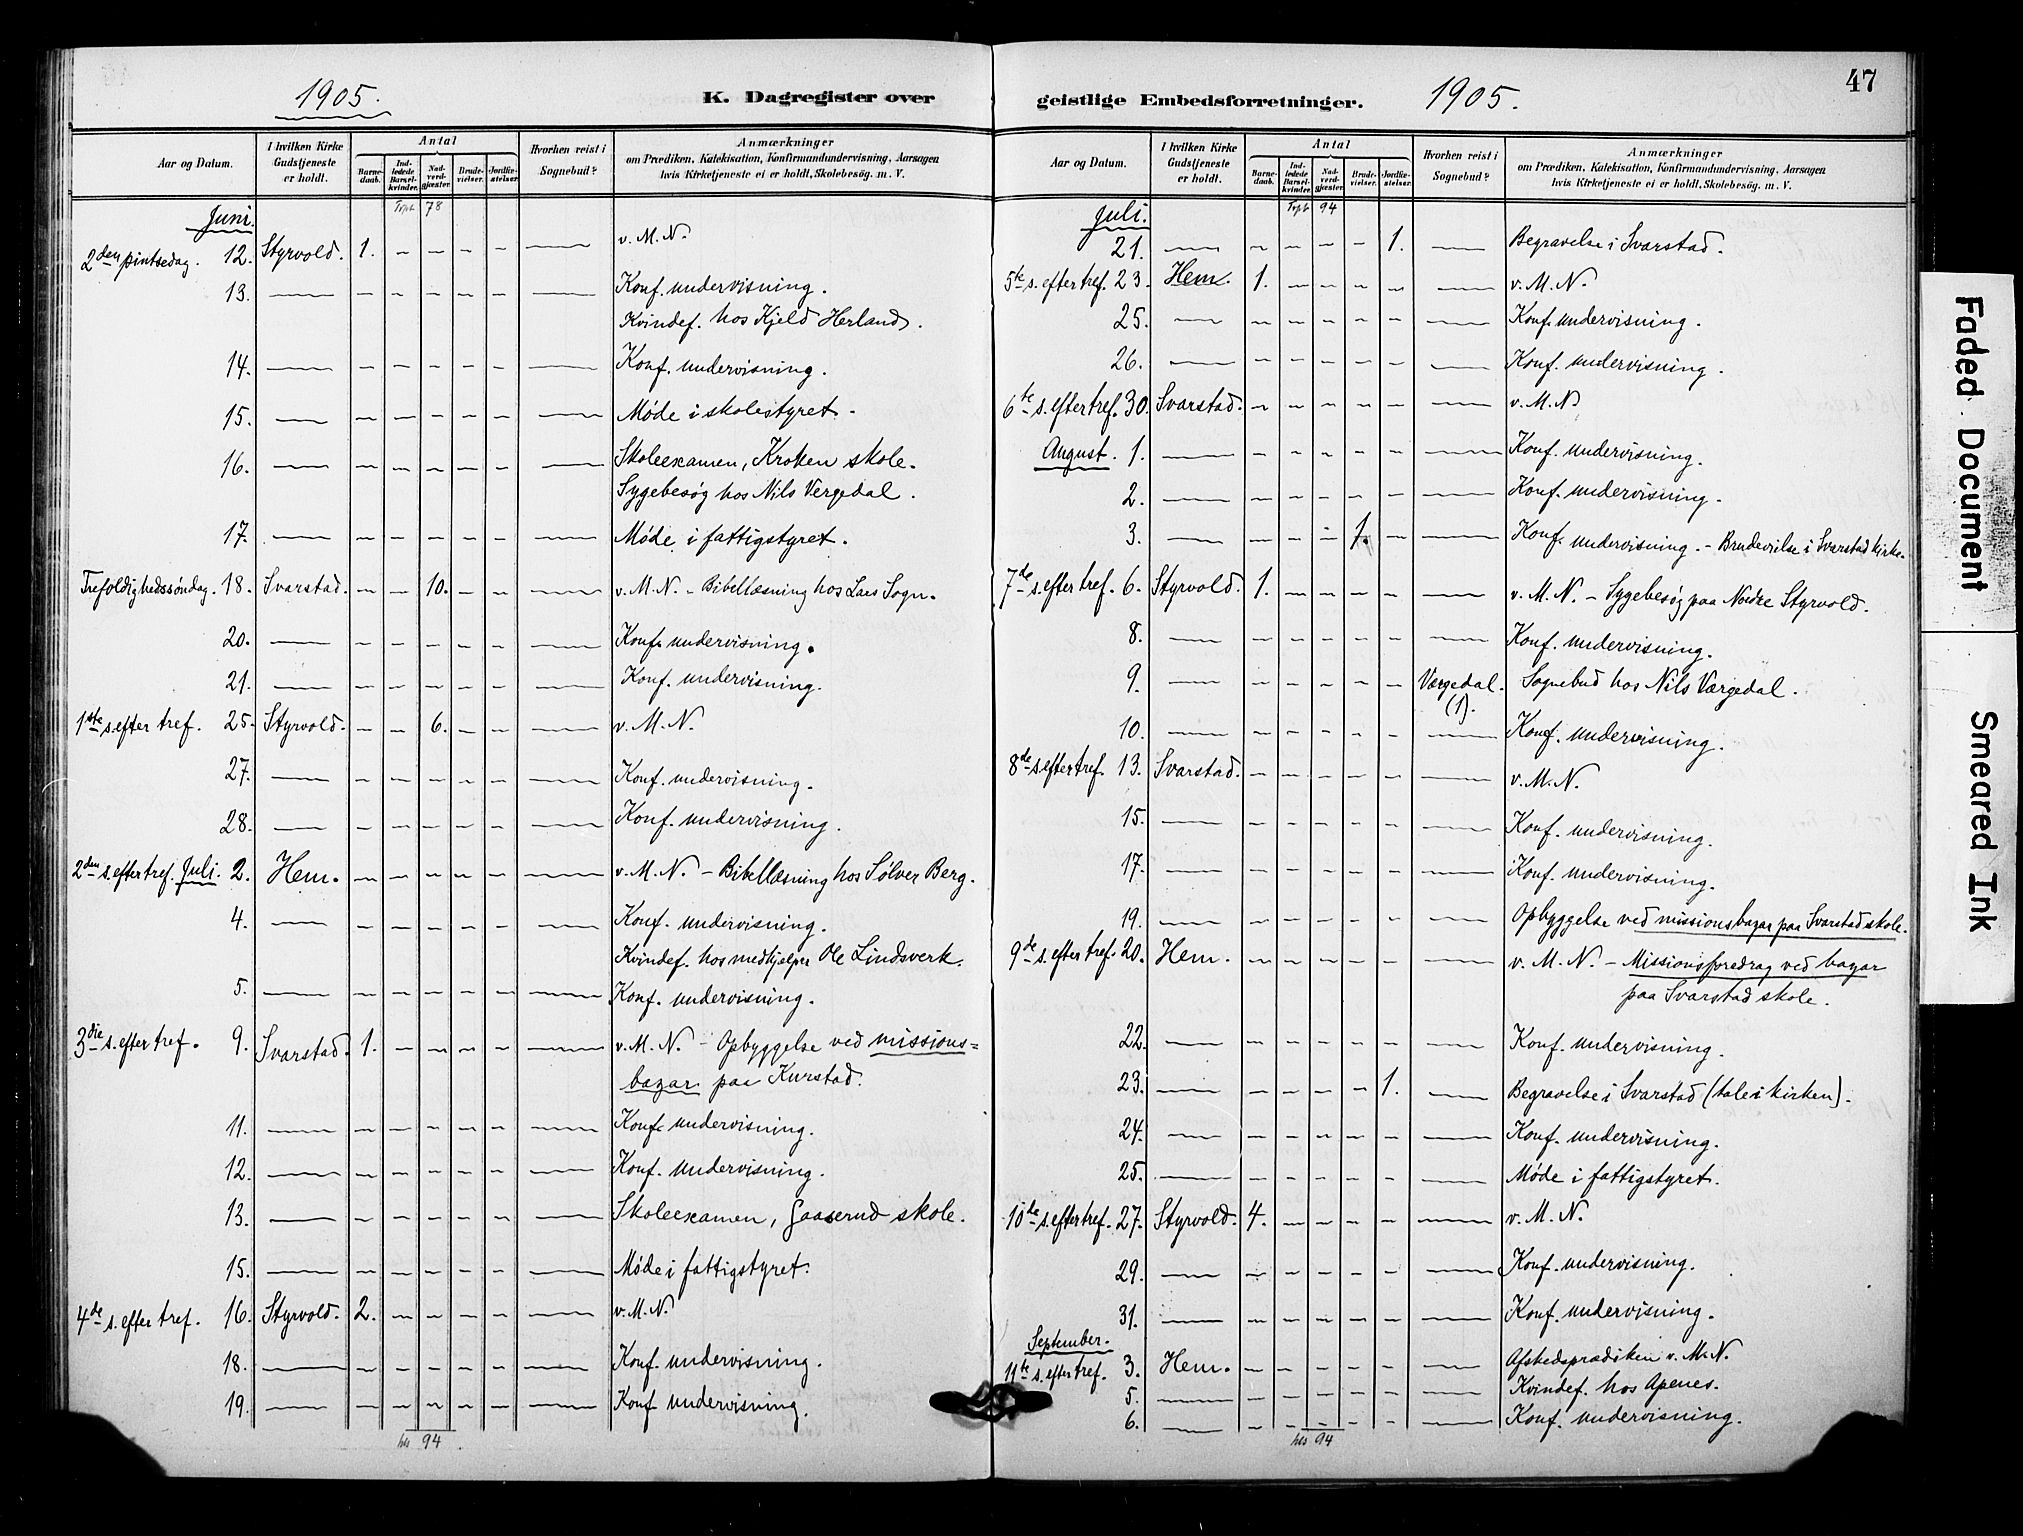 1905. K. Dagregister over
Aar og Datum. | I hvilken Kirke Gudstjeneste er holdt. | Antal | Barnedaab. | Indledede Barselkvinder. | Nadverdgjester. | Brudevielser. | Jordfæstelser. | Hvorhen reist i Sognebud? | Anmærkninger om Prædiken, Katekisation, Konfirmandundervisning, Aarsagen hvis Kirketjeneste ei er holdt, Skolebesøg. m. V.
Juni. Trpt. 78
2den pintsedag. 12. Styrvold. 1. – – – – — v. M. N.
13. — – – – – – — Konf. undervisning.
Kvindef. hos Kjeld Herland.
14. — – – – – – — Konf. undervisning.
15. — – – – – – — Møde i skolestyret.
16. — – – – – – — Skoleexamen, Kroken skole.
Sygebesøg hos Nils Vergedal.
17. — – – – – – — Møde i fattigstyret.
Trefoldighedssøndag. 18. Svarstad. – – 10. – – — v. M. N. – Bibellæsning hos Lars Sogn.
20. — – – – – – — Konf. undervisning.
21. — – – – – – — Konf. undervisning.
1ste s. efter tref. 25. Styrvold. – – 6. – – — v. M. N.
27. — – – – – – — Konf. undervisning.
28. — – – – – – — Konf. undervisning.
2den s. efter tref. Juli. 2. Hem. – – – – – — v. M. N. – Bibellæsning hos Sølver Berg.
4. — – – – – – — Konf. undervisning.
Kvindef. hos medhjelper Ole Lindsverk.
5. — – – – – – — Konf. undervisning.
3die s. efter tref. 9. Svarstad. 1. – – – – — v. M. N. – Opbyggelse ved missions=
bazar paa Kurstad.
11. — – – – – – — Konf. undervisning.
12. — – – – – – — Konf. undervisning.
13. — – – – – – — Skoleexamen, Gaaserud skole.
15. — – – – – – — Møde i fattigstyret.
4de s. efter tref. 16. Styrvold. 2. – – – – — v. M. N.
18. — – – – – – — Konf. undervisning.
19. — – – – – – — Konf. undervisning.
94
geistlige Embedsforretninger. 1905. 47
Aar og Datum. | I hvilken Kirke Gudstjeneste er holdt. | Antal | Barnedaab. | Indledede Barselkvinder. | Nadverdgjester. | Brudevielser. | Jordfæstelser. | Hvorhen reist i Sognebud? | Anmærkninger om Prædiken, Katekisation, Konfirmandundervisning, Aarsagen hvis Kirketjeneste ei er holdt, Skolebesøg. m. V.
Juli. Trpt. 94
21. — – – – – 1. — Begravelse i Svarstad.
5te s. efter tref. 23. Hem. 1. – – – – — v. M. N.
25. — – – – – – — Konf. undervisning.
26. — – – – – – — Konf. undervisning.
6te s. efter tref. 30. Svarstad. – – – – – — v. M. N.
August. 1. — – – – – – — Konf. undervisning.
2. — – – – – – — Konf. undervisning.
3. — – – – 1. – — Konf. undervisning. – Brudevielse i Svarstad kirke.
7de s. efter tref. 6. Styrvold. 1. – – – – — v. M. N. – Sygebesøg paa Nordre Styrvold.
8. — – – – – – — Konf. undervisning.
9. — – – – – – Vergedal. (1). Sognebud hos Nils Vergedal.
10. — – – – – – — Konf. undervisning.
8de s. efter tref. 13. Svarstad. – – – – – — v. M. N.
15. — – – – – – — Konf. undervisning.
17. — – – – – – — Konf. undervisning.
19. — – – – – – — Opbyggelse ved missionsbazar paa Svarstad skole.
9de s. efter tref. 20. Hem. – – – – – — v. M. N. – Missionsforedrag ved bazar
paa Svarstad skole.
22. — – – – – – — Konf. undervisning.
23. — – – – – 1. — Begravelse i Svarstad (tale i kirken).
24. — – – – – – — Konf. undervisning.
25. — – – – – – — Møde i fattigstyret.
10de s. efter tref. 27. Styrvold. 4. – – – – — v. M. N.
29. — – – – – – — Konf. undervisning.
31. — – – – – – — Konf. undervisning.
September.
11te s. efter tref. 3. Hem. – – – – – — Afskedsprædiken v. M. N.
5. — – – – – – — Kvindef. hos Apenes.
6. — – – – – – — Konf. undervisning.
94
Faded Document
Smeared Ink